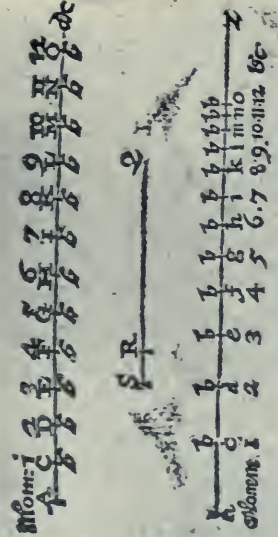 Mom: 1 2 3 4 5 6 7 8 9 10 11 12
A C D E F G H I K L M N O &c
b b b b b b b b b b b b
S R Q
b b b b b b b b b b b
c d e f g h i k l m n o
Moment. 1 2 3 4 5 6.7 8.9.10.11.12 &c